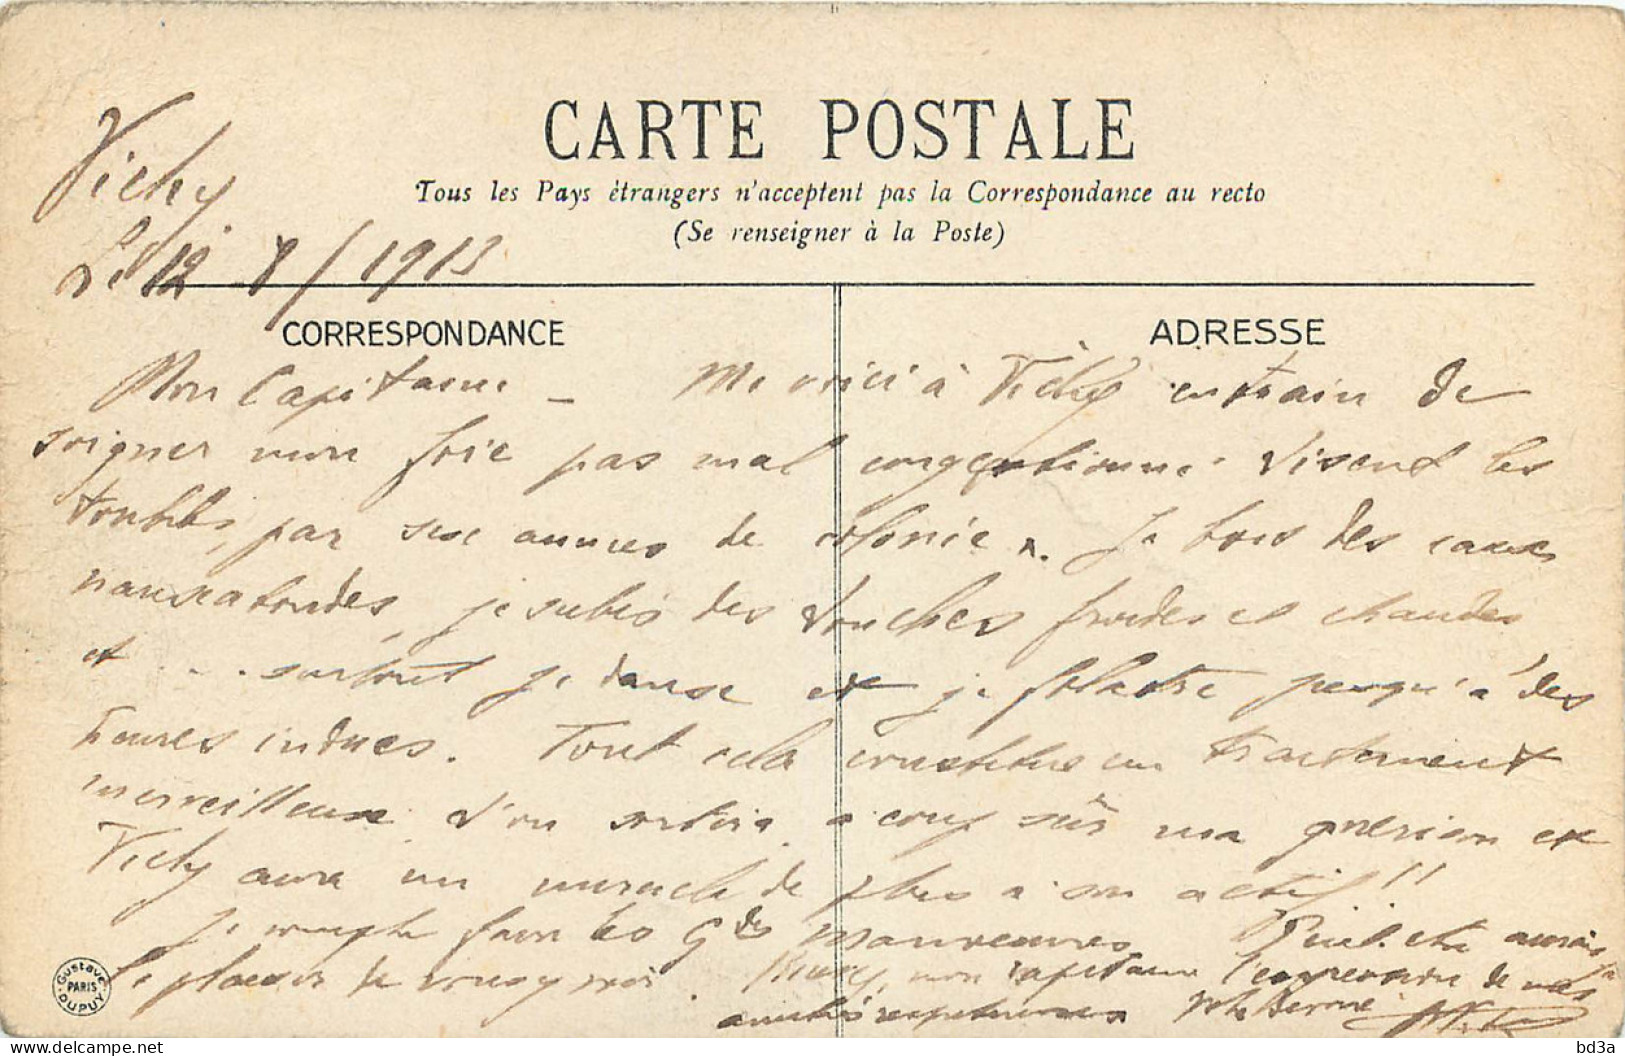 CARTE POSTALE
Tous les Pays étrangers n'acceptent pas la Correspondance au recto
(Se renseigner à la Poste)
Vichy
Le 12 8/1913
CORRESPONDANCE
ADRESSE
Mon Capitaine _ Me voici à Vichy en train de
soigner mon foie pas mal congestionné. Disent les
par six années de colonie. Je bois des eaux
nauséabondes, je subis des douches froides et chaudes
et ... surtout je danse et je folâtre jusqu'à des
heures indues. Tout cela constitue un traitement
merveilleux d'où sortira à coup sûr ma guérison et
Vichy aura un miracle de plus à son actif !!
Je compte faire les Gdes Manoeuvres aurais
le plaisir de vous y voir. mon capitaine l'expression de mes
respectueuses
Gustave
PARIS
DUPUY
bd3a